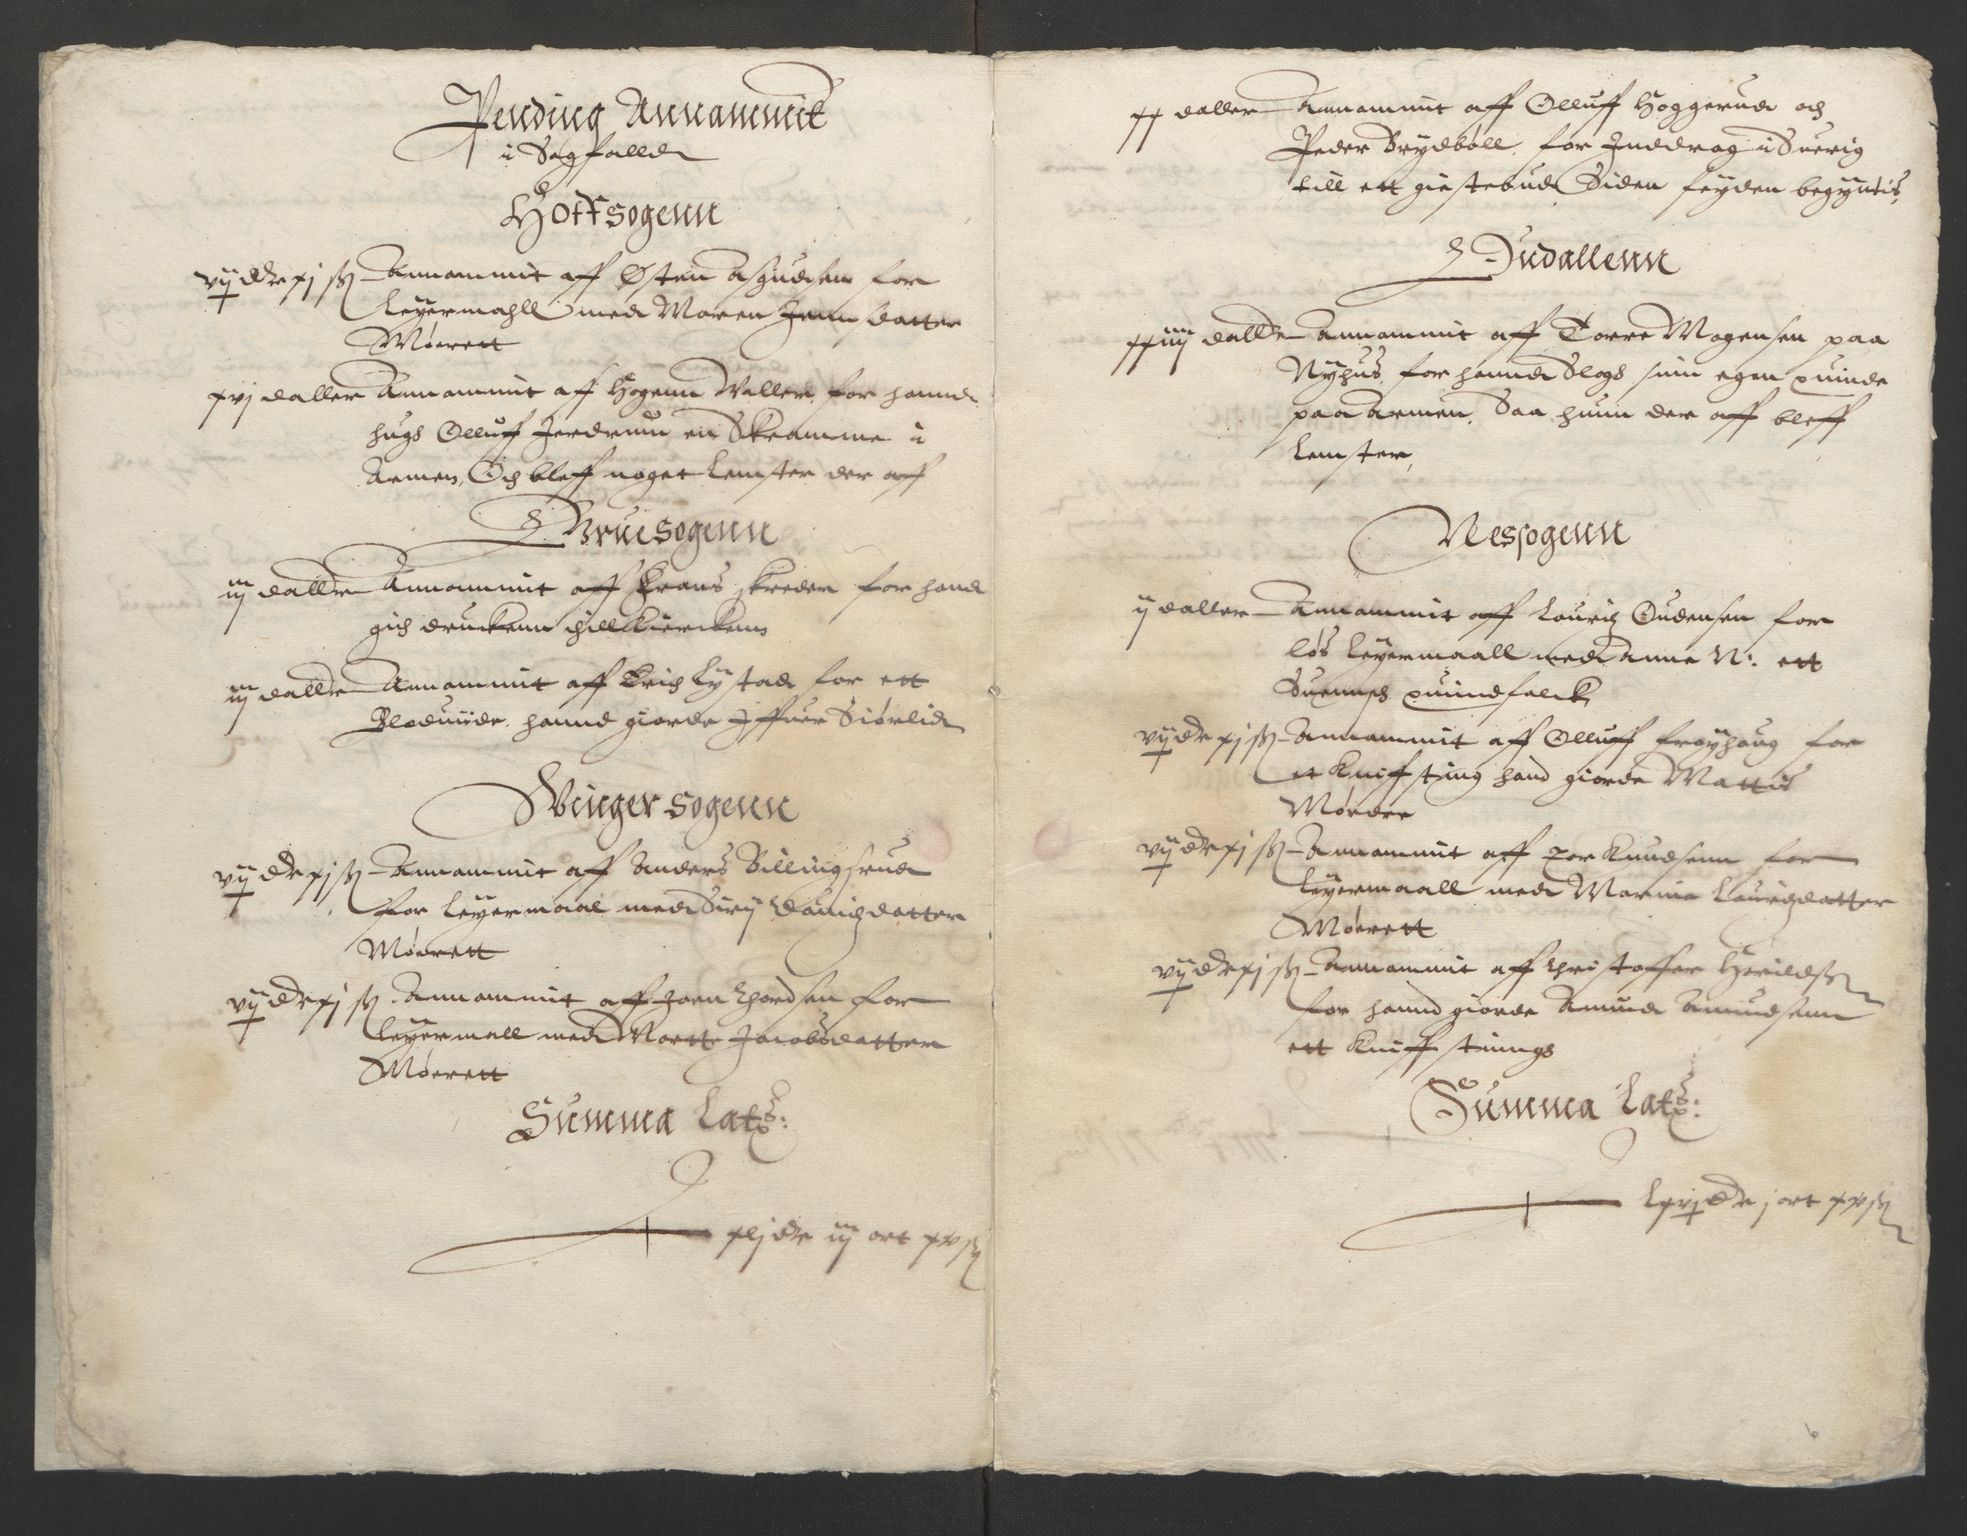 Pending Annammit
i Sagfalld
Hoffsogenn
vij dlr xj sz Annammit aff Østen Asgudsen for
Leyermahll med Maren Jenns datter
Møerett
xvj daller Annammit aff Hogenn Waller, for hannd
hugh Olluff Jerdrum en Skramme i
Armen, Och bleff noget Lemster der aff
Gruesogenn
iij daller Annammit aff Frans skreder for hand
gich druckenn thill Kierckenn
iij daller Annammit aff Erich Lystad for ett
Blodwiide, hannd giorde Iffuer Siørlid
Winger sogenn
vij dlr xj sz Annammit aff Anders Billingsrud
for Leyermaal med Sirij Dauidzdatter
Møerett
vij dlr xj sz Annammit aff Joen Thordsen for
Leyermall med Marte Jacobsdatter
Møerett
Summa Lats:
xlj dlr iij ort xx sz
xx daller Annammit aff Olluff Hoggerud och
Peder Brydbøll, for Inddrog i Suerig
till ett giestebud Siden feyden begyntis,
Oudallenn
xxiiij daller Annammit aff Torre Mogensen paa
Nyhus, for hannd Slogh sinn egen quinde
paa Armen, Saa hunn der aff bleff
Lemster,
Nessogenn
ij daller Annammit aff Lauritz Oudensen for
løs Leyermaall med Anne N: ett
Suennsk quindfolck,
vij dlr xj sz Annammit aff Olluff Frøyhoug for
et Kniffsting hand giorde Mattis
Mørdre
vij dlr xj sz Annammit aff Por Knudsenn for
Leyermaall med Marnie Lauridzdatter
Møerett
vij dlr xj sz Annammit aff Christoffer Horildsz
for hannd giorde Amund Amundsenn
ett Kniff stinngh
Summa Lats:
lxvj dlr j ort xx sz